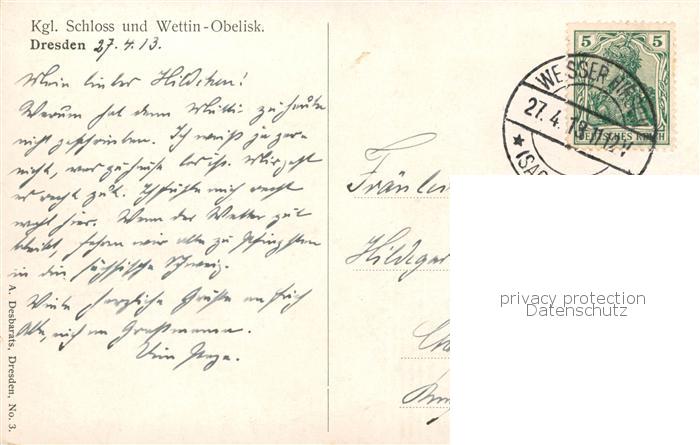 Kgl. Schloss und Wettin-Obelisk.
Dresden 27.4.13.
Mein lieber Hildchen!
Warum hat denn Mutti zu heute
nicht geschrieben. Ich weiß ja gar
nicht, was zuhause los ist. Mir geht
es recht gut. Ich fühle mich recht
wohl hier. Wenn das Wetter gut
bleibt, fahren wir alle zu Pfingsten
in die sächsische Schweiz.
Viele herzliche Grüße an Euch
Alle, auch an Großmama.
Dein
A. Desbarats, Dresden, No. 3.
5 5
DEUTSCHES REICH
WEISSER HIRSCH
27.4.13
★ (SAC
Fräulein
Hildegar
privacy protection
Datenschutz